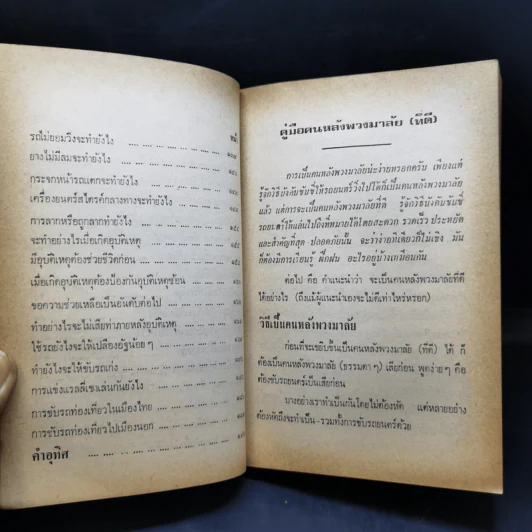 หน้า
รถไม่ยอมวิ่งจะทำยังไง
ยางไม่มีลมจะทำยังไง
กระจกหน้ารถแตกจะทำยังไง
เครื่องยนต์สไตรค์กลางทางจะทำยังไง
การลากหรือถูกลากทำยังไง
จะทำอย่างไรเมื่อเกิดอุบัติเหตุ
มีอุบัติเหตุต้องช่วยชีวิตก่อน
เมื่อเกิดอุบัติเหตุต้องป้องกันอุบัติเหตุซ้อน
ขอความช่วยเหลือเป็นอันดับต่อไป
ทำอย่างไรจะไม่เสียท่าภายหลังอุบัติเหตุ
ใช้รถยังไงจะให้เปลืองอัฐน้อยๆ
ทำยังไงจะให้ขับรถเก่ง
การแข่งแรลลี่เขาเล่นกันยังไง
การขับรถท่องเที่ยวในเมืองไทย
การขับรถท่องเที่ยวไปเมืองนอก
คำอุทิศ
คู่มือคนหลังพวงมาลัย (ที่ดี)
การเป็นคนหลังพวงมาลัยน่ะง่ายหรอกครับ เพียงแต่
รู้จักวิธีบังคับขับขี่ให้รถยนต์วิ่งไปได้ก็เป็นคนหลังพวงมาลัย
แล้ว แต่การจะเป็นคนหลังพวงมาลัยที่ดี รู้จักวิธีบังคับขับขี่
รถยนต์ให้แล่นไปถึงที่หมายได้โดยสะดวก รวดเร็ว ประหยัด
และสำคัญที่สุด ปลอดภัยนั้น จะว่าง่ายทีเดียวก็ไม่เชิง มัน
ก็ต้องมีการเรียนรู้ ฝึกฝน อะไรอยู่บ้างเหมือนกัน
ต่อไป คือ คำแนะนำว่า จะเป็นคนหลังพวงมาลัยที่ดี
ได้อย่างไร (ถึงแม้ผู้แนะนำเองจะไม่ดีเท่าไหร่หรอก)
วิธีเป็นคนหลังพวงมาลัย
ก่อนที่จะเขยิบขึ้นเป็นคนหลังพวงมาลัย (ที่ดี) ได้ ก็
ต้องเป็นคนหลังพวงมาลัย (ธรรมดาๆ) เสียก่อน พูดง่ายๆ คือ
ต้องขับรถยนต์เป็นเสียก่อน
บางอย่างเราทำเป็นกันโดยไม่ต้องหัด แต่หลายอย่าง
ต้องหัดถึงจะทำเป็น-รวมทั้งการขับรถยนต์ด้วย